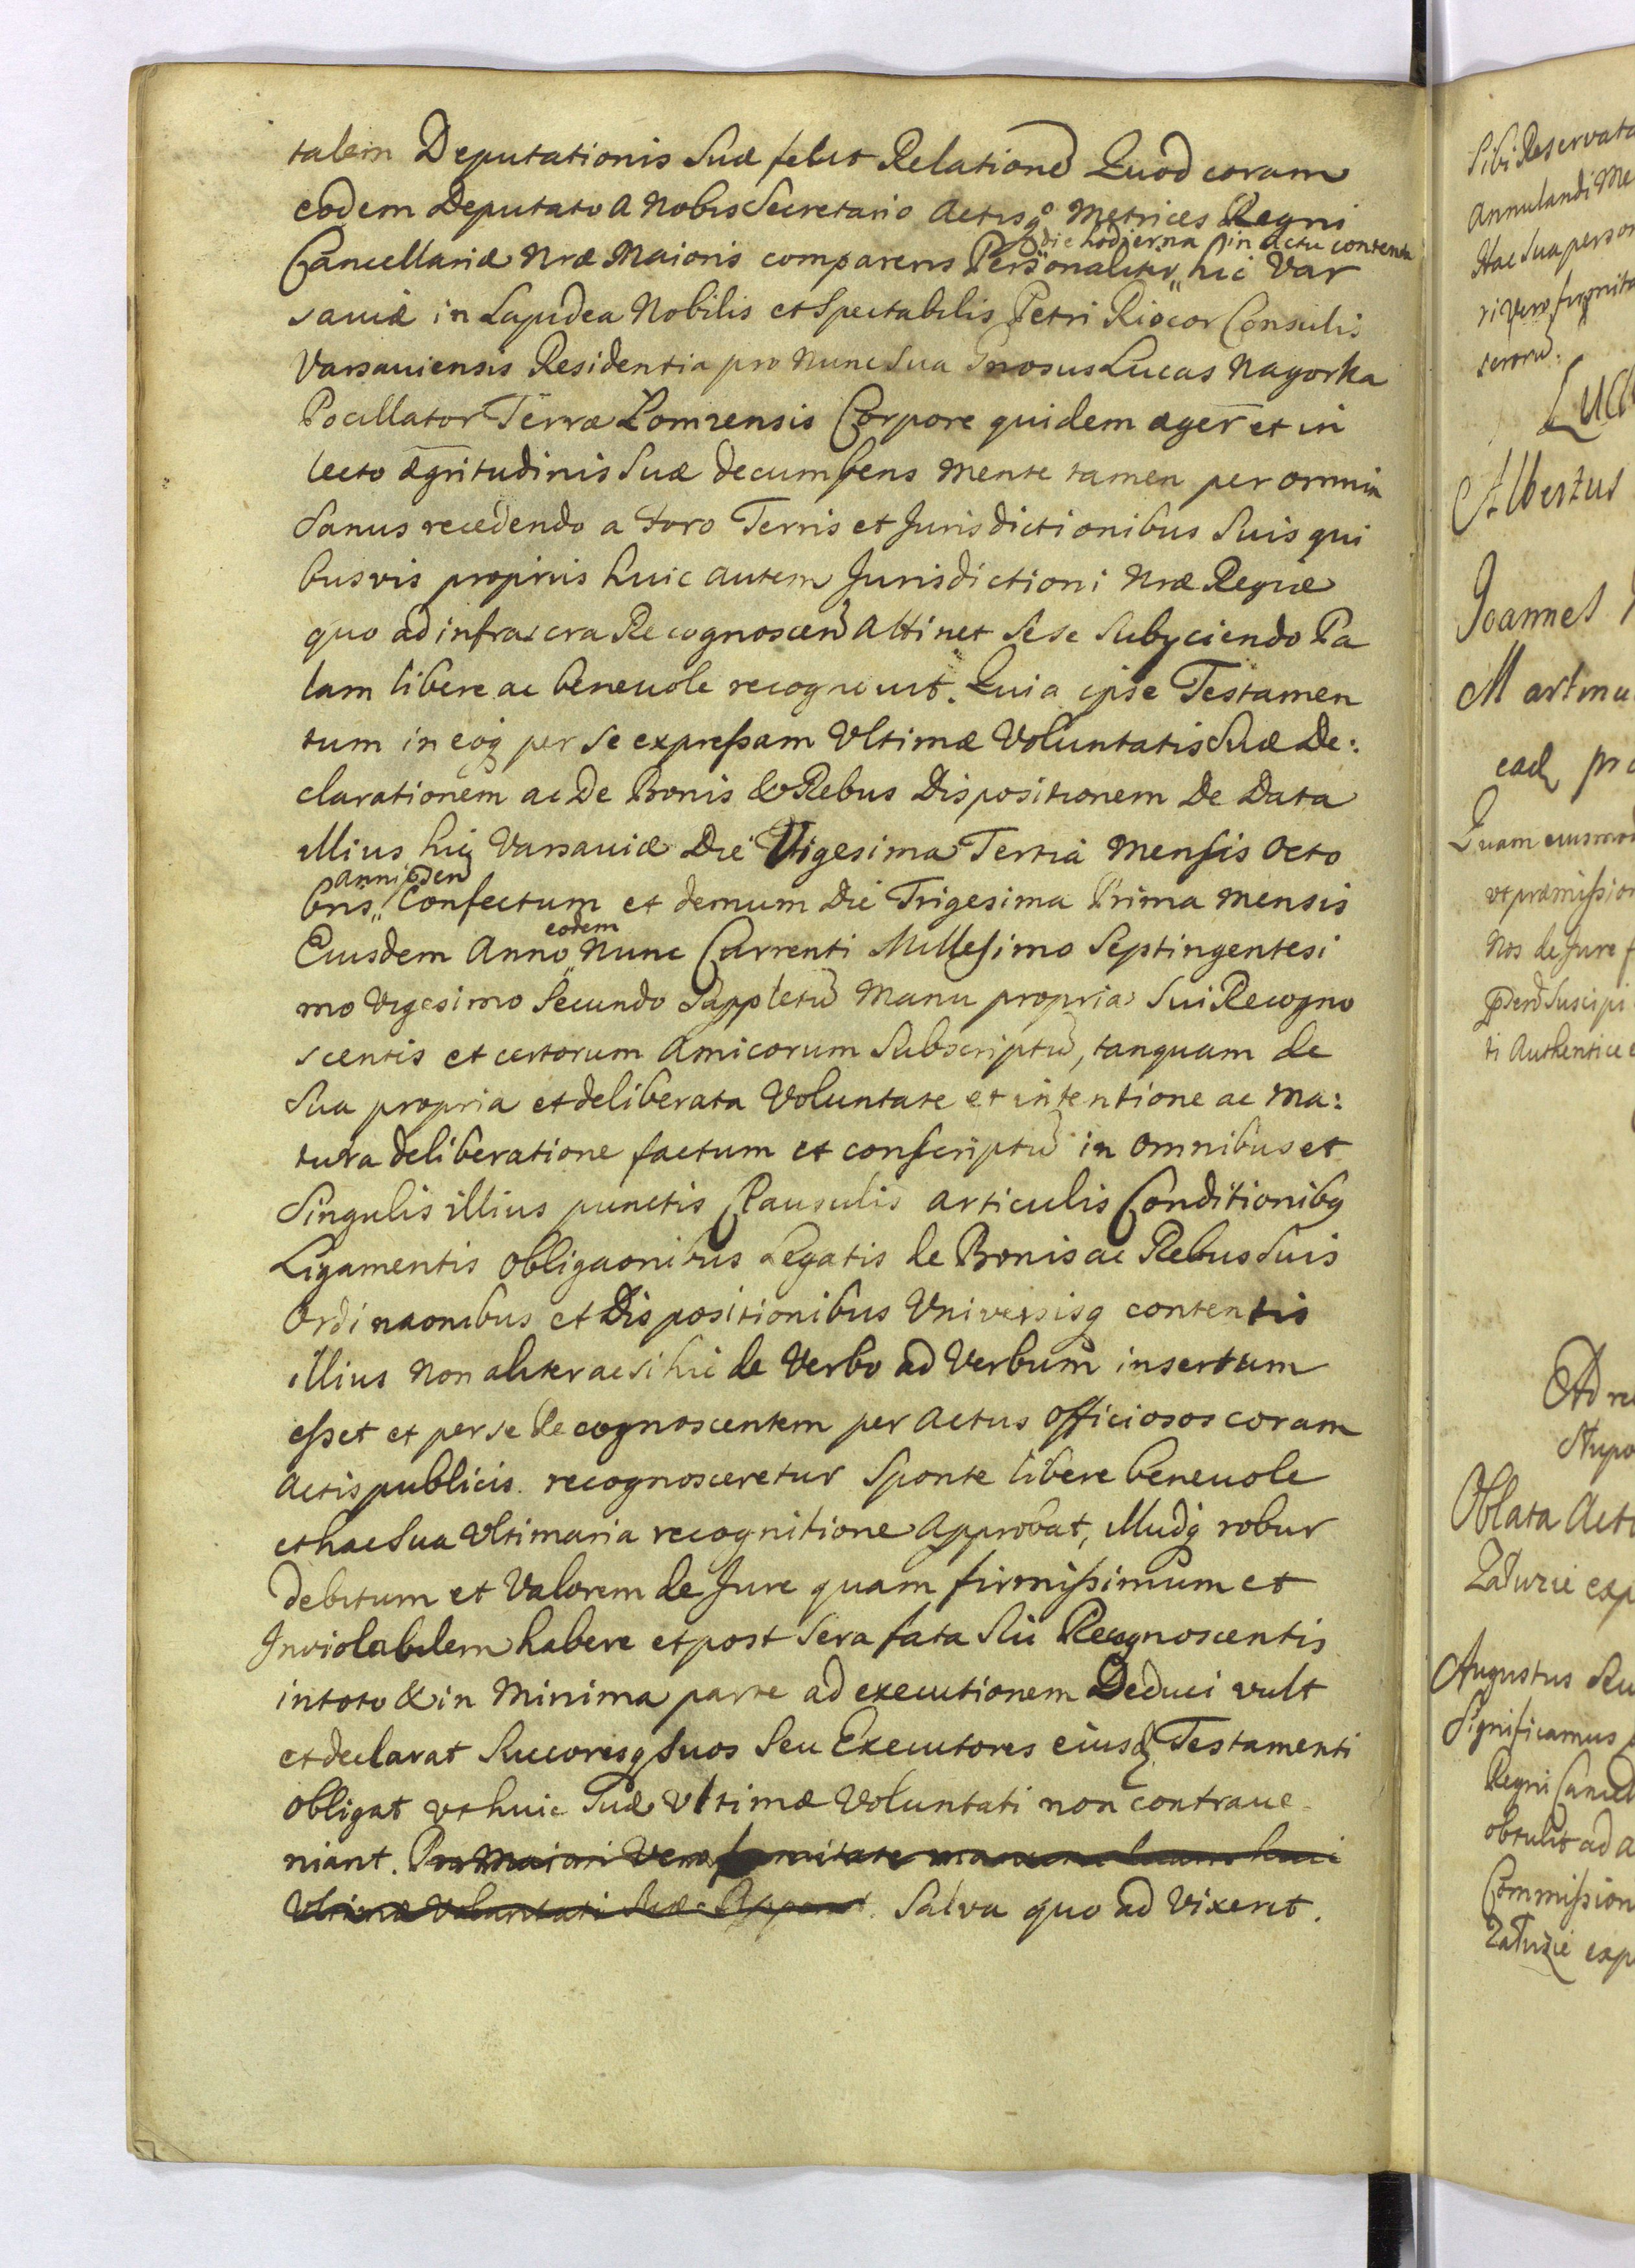 talem Deputationis Suæ fecit Relatione Quod coram
eodem Deputato a Nobis Secretario Actisq Metrices Regni
die hodierna in actu contenta
Cancellariæ Nræ Maioris comparens Personaliter hic Var
saviæ in Lapidea Nobilis et Spectabilis Petri Riocor Consulis
Varsauiensis Residentia pro Nunc Sua Gnosus Lucas Nagorka
Pocillator Terræ Lomzensis Corpore quidem æger et in
lecto ægritudinis Suæ decumbens mente tamen per omnia
Sanus recedendo a foro Terris et Jurisdictionibus Suis qui
busvis propriis huic autem Jurisdictioni Nræ Regiæ
quo ad infrascra Recognoscen Attinet Sese Subyciendo Pa
lam libere ac beneuole recognouit. Quia ipse Testamen
tum in eoq per se expressam Ultimæ Voluntatis Suæ De:
clarationem ac De Bonis & Rebus Dispositionem De Data
illius hic Varsauiæ Die Vigesima Tertia Mensis Octo
anni eiden
bris Confectum et demum Die Trigesima Prima mensis
eodem
Eiusdem Anno Nunc Currenti Millesimo Septingentesi
mo Vigesimo Secundo Suppletu Manu propria Sui Recogno
scentis et certorum Amicorum Subscriptu, tanquam de
Sua propria et deliberata Voluntate et intentione ac Ma:
tura deliberatione factum et conscriptu in omnibus et
Singulis illius punctis Clausulis articulis Conditionibq
Ligamentis obligaonibus Legatis de Bonis ac Rebus Suis
Ordinaonibus et Dispositionibus Universisq contentis
illius Non aliter ac si hic de Verbo ad Verbum insertum
esset et per se Recognoscentem per Actus Officiosos coram
Actis publicis recognosceretur Sponte libere beneuole
et hac Sua Ultimaria recognitione Approbat, Illudq robur
debitum et Valorem de Jure quam firmissimum et
Inviolabilem habere et post Sera fata Sui Recognoscentis
in toto & in Minima parte ad executionem Deduci vult
et declarat Succoresq Suos Seu Executores eiusd Testamenti
obligat ut huic Suæ Ultimæ Voluntati non contraue
niant. Pro Maiori Vero firmitate manum suam huic
Ultimæ Voluntati Suæ Appont. Salva quo ad Vixerit.
Sibi Reservata
Annulandi Me
Hac Sua person
ri Vero firmita
serorū.
Luc
Albertus
Joannes
Martinu
ead pro
Quam eiusmod
ut præmission
Nos de Jure f
Suscipi
ti Authentice e
Ad re
Oblata Acto
Załuzie exp
Augustus Secu
Significamus
Regni Cancell
obtulit ad a
Commission
Załuzie exp